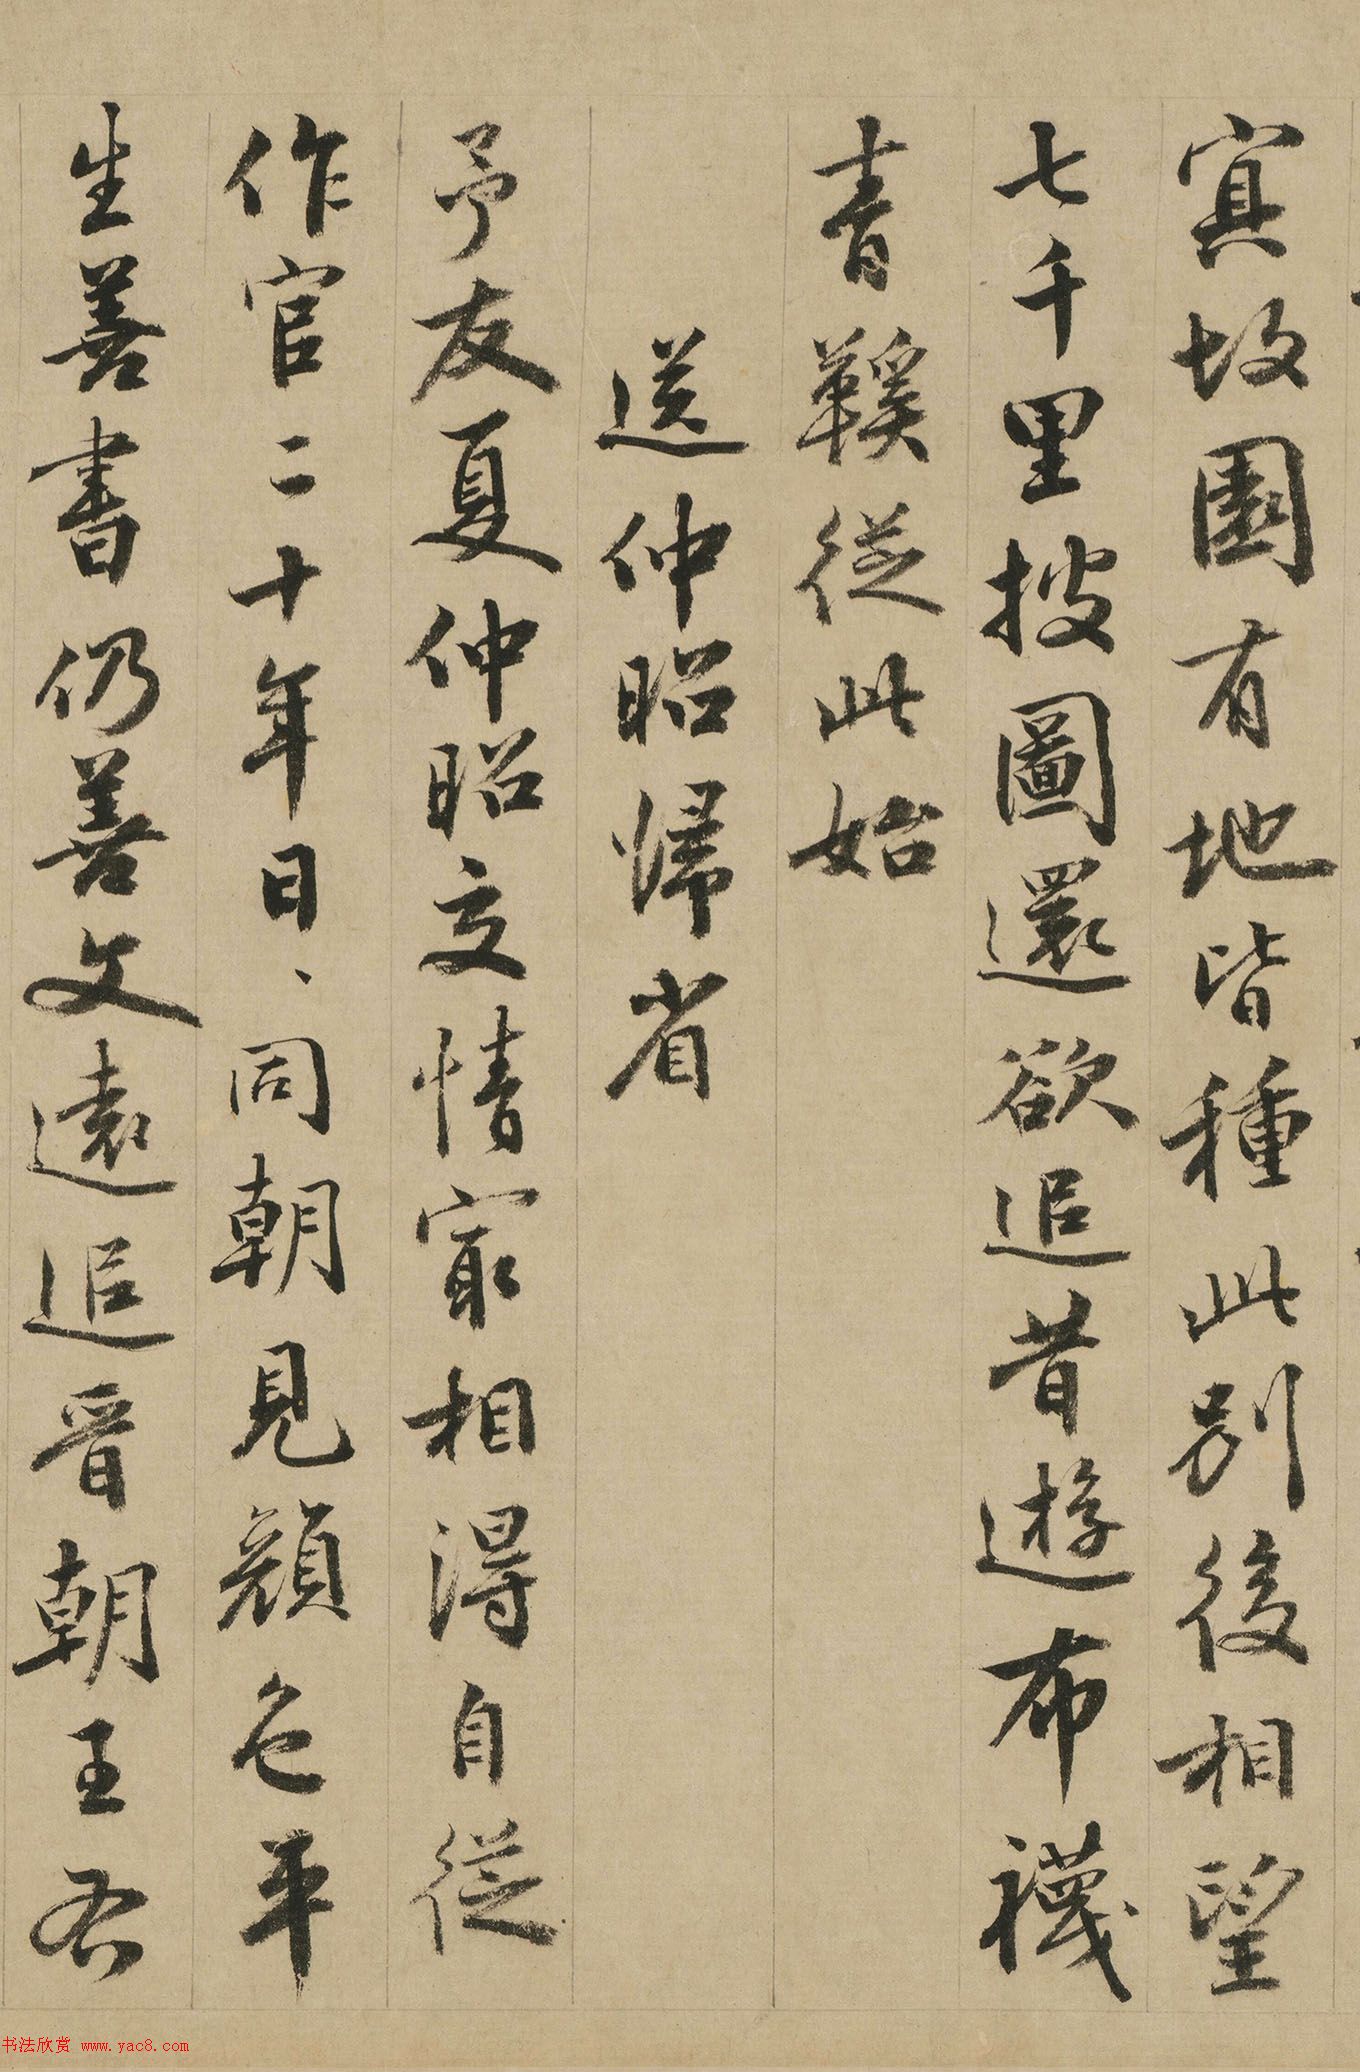 寘故園有地皆種此別後相望
七千里披圖還欲追昔遊布襪
青鞵從此始
送仲昭歸省
予友夏仲昭交情冣相得自從
作官二十年日、同朝見顏色平
生善書仍善文遠追晉朝王右
书法欣赏 www.yac8.com